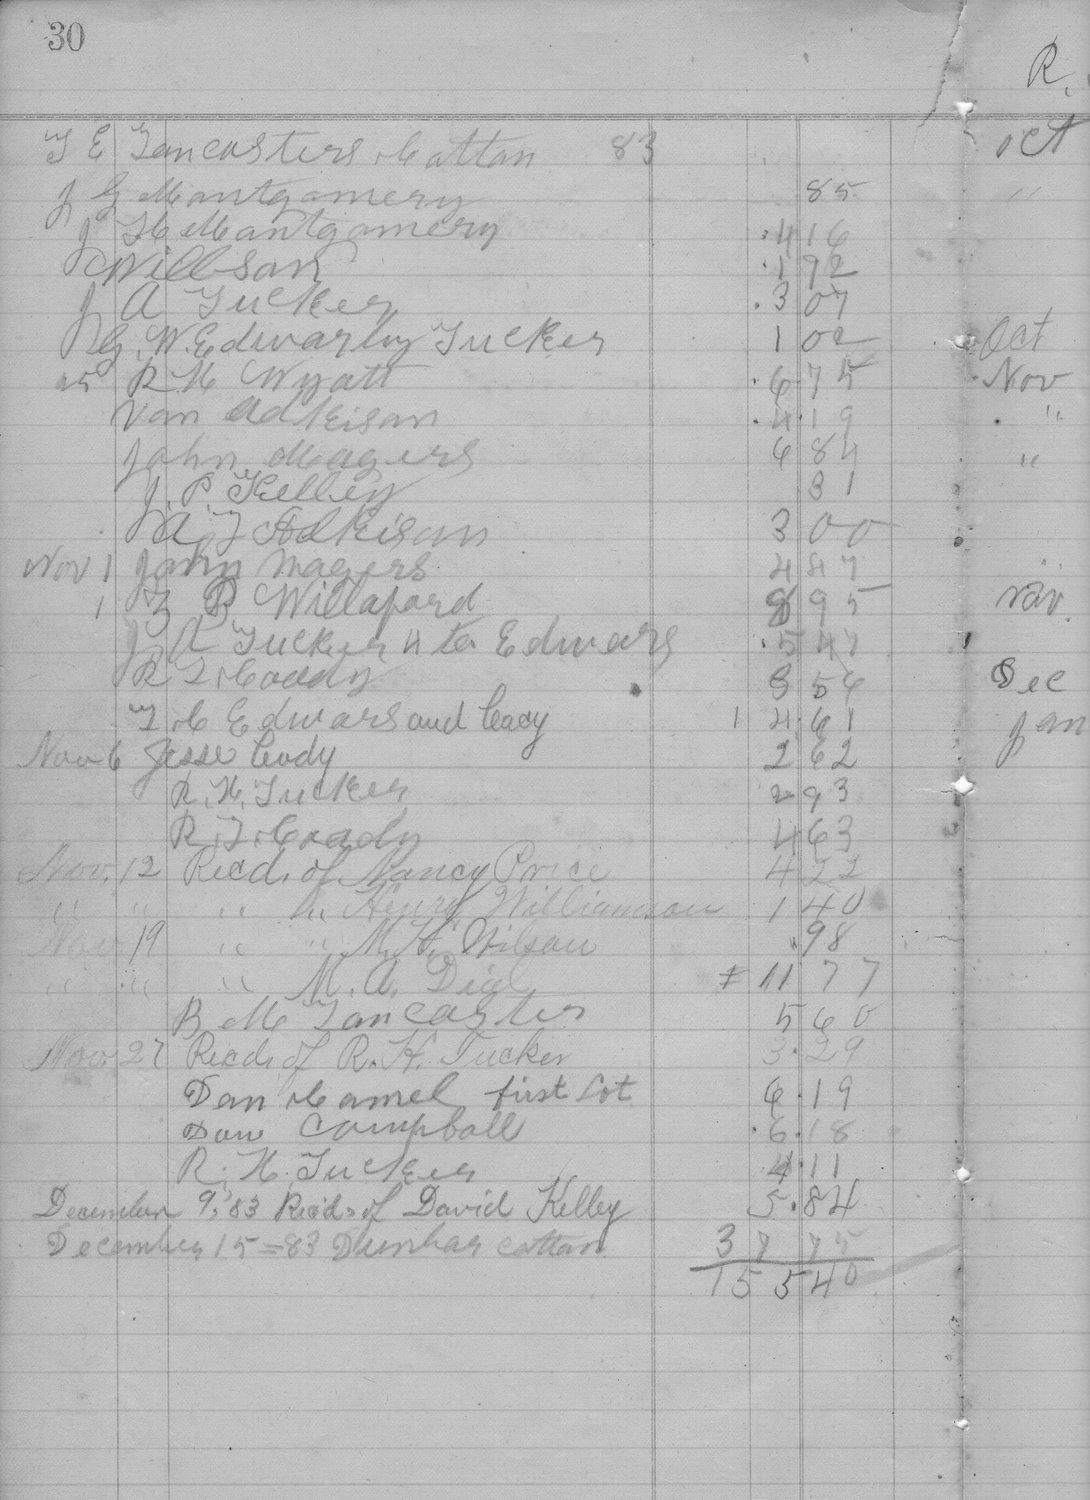 30
R.
T E Lancasters Cattan 83 oct
J G Mantgamery 85 "
J H Mantgamery 4 16
Willsan 1 92
J A Tucker 3 07
G. W. Edwards Tucker 1 02 Oct
25 R H Wyatt 6 75 Nov
Van Adkisan 4 19 "
John Magers 6 84 "
J. P. Kelley 31
A J Adkisan 3 00
Nov 1 John Magers 4 47
1 Z B Willaford 8 95 Nov
J A Tucker 4 to Edwars 5 47
R T Coady 3 56 Dec
T C Edwars and Coady 1 4 61 Jan
Nov 6 Jesse Cody 2 62
R. H. Tucker 2 93
R. T. Coady 4 63
Nov. 12 Recd. of Nancy Price 4 22
" " " " Henry Williamson 1 40
Nov 19 " " M. H. Wilson .98
" " " M. A. Dial 11 77
B M Lancaster 5 60
Nov. 27 Recd. of R. H. Tucker 3.29
Dan Camel first Lot 6.19
Dan Campball 6.18
R. H. Tucker 4.11
December 9, '83 Recd. of David Kelley 5.84
December 15 = 83 Dunbar cottan 37 75
155 40